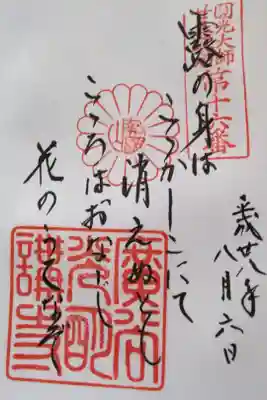 圓光大師
第十六番
露の身は
こゝかしこにて
消えぬとも
こゝろはおなじ
花のうてなぞ
平成廿八年
八月六日
廣谷
光明
講寺